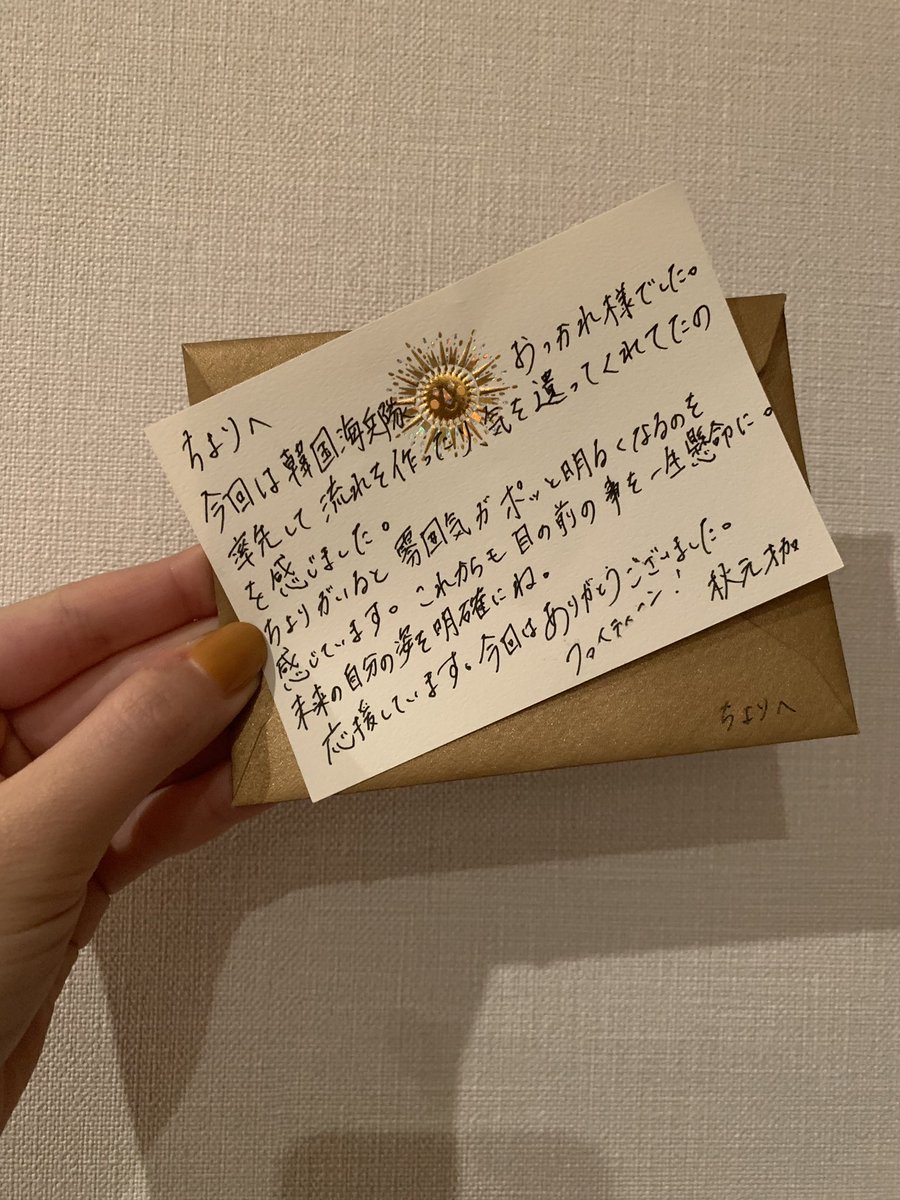 ちよりへ
今回は韓国海兵隊 おつかれ様でした。
率先して流れを作ったり気を遣ってくれてたの
を感じました。
ちよりがいると雰囲気がポッと明るくなるのを
感じています。これからも目の前の事を一生懸命に。
未来の自分の姿を明確にね。
応援しています。今回はありがとうございました。
ファイティーン! 秋元才加
ちよりへ